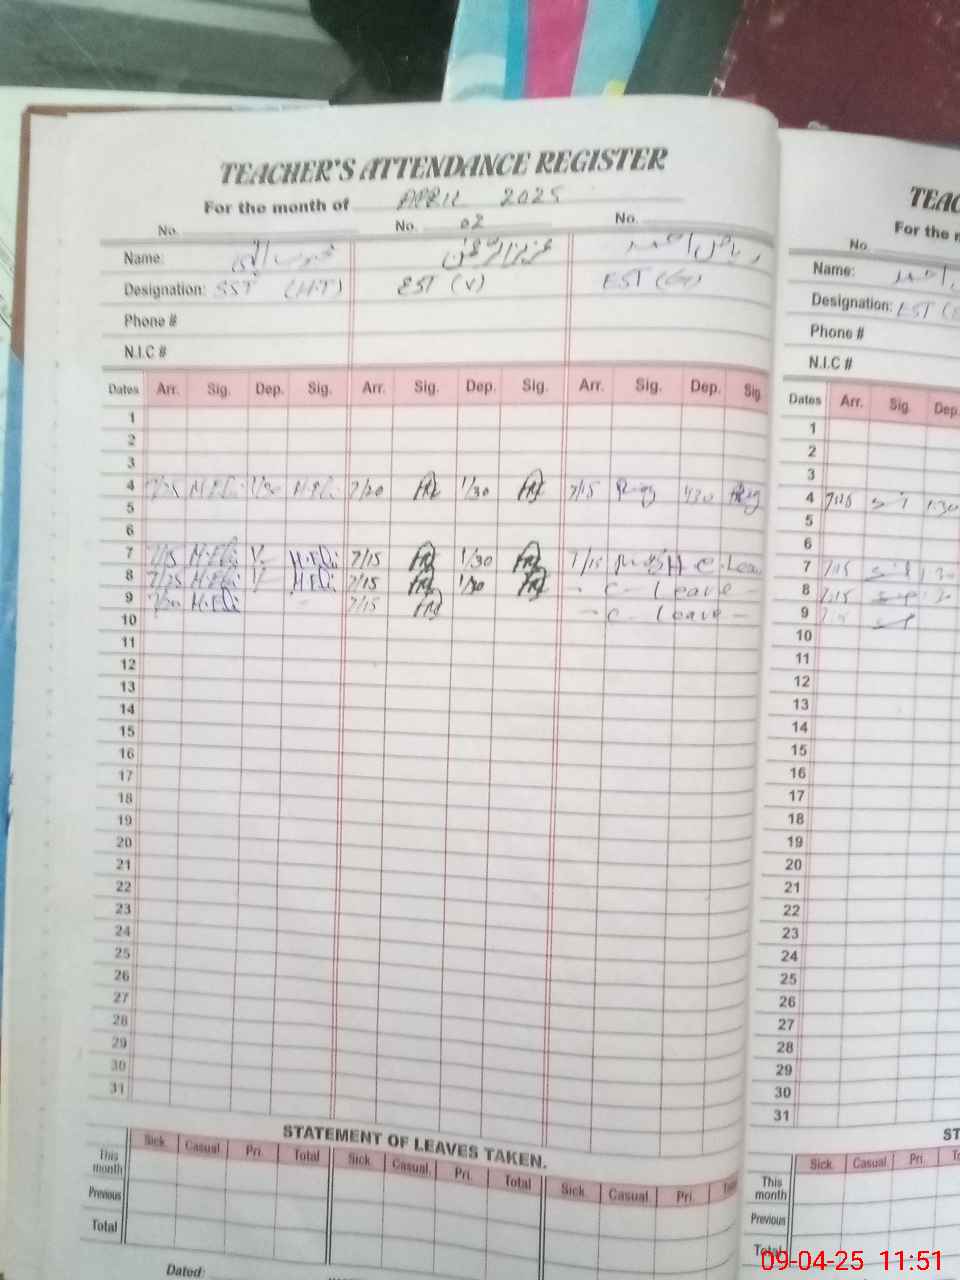 TEACHER'S ATTENDANCE REGISTER
For the month of APRIL 2025
No. No. 02 No.
Name: محبوب الٰہی عزیز الرحمٰن ریاض احمد
Designation: SST (H-T) EST (V) EST (G)
Phone #
N.I.C #
Dates Arr. Sig. Dep. Sig. Arr. Sig. Dep. Sig. Arr. Sig. Dep. Sig
1
2
3
4 M.Eli 1/30 M.Eli 7/20 1/30 7/15 1/30
5
6
7 7/15 M.Eli M.Eli 7/15 1/30 7/15 C. Leav
8 7/25 M.Eli M.Eli 7/15 1/30 - C - Leave -
9 M.Eli - 7/15 - C - Leave -
10
11
12
13
14
15
16
17
18
19
20
21
22
23
24
25
26
27
28
29
30
31
STATEMENT OF LEAVES TAKEN.
Sick Casual Pri. Total Sick Casual. Pri. Total Sick Casual Pri.
This month
Previous
Total
Dated:
TEAC
For the m
No.
Name: احمد
Designation: EST
Phone #
N.I.C #
Dates Arr. Sig. Dep.
1
2
3
4 7:15 1:30
5
6
7 7:15 1:30
8 7:15
9
10
11
12
13
14
15
16
17
18
19
20
21
22
23
24
25
26
27
28
29
30
31
ST
Sick Casual. Pri. To
This month
Previous
Total
09-04-25 11:51